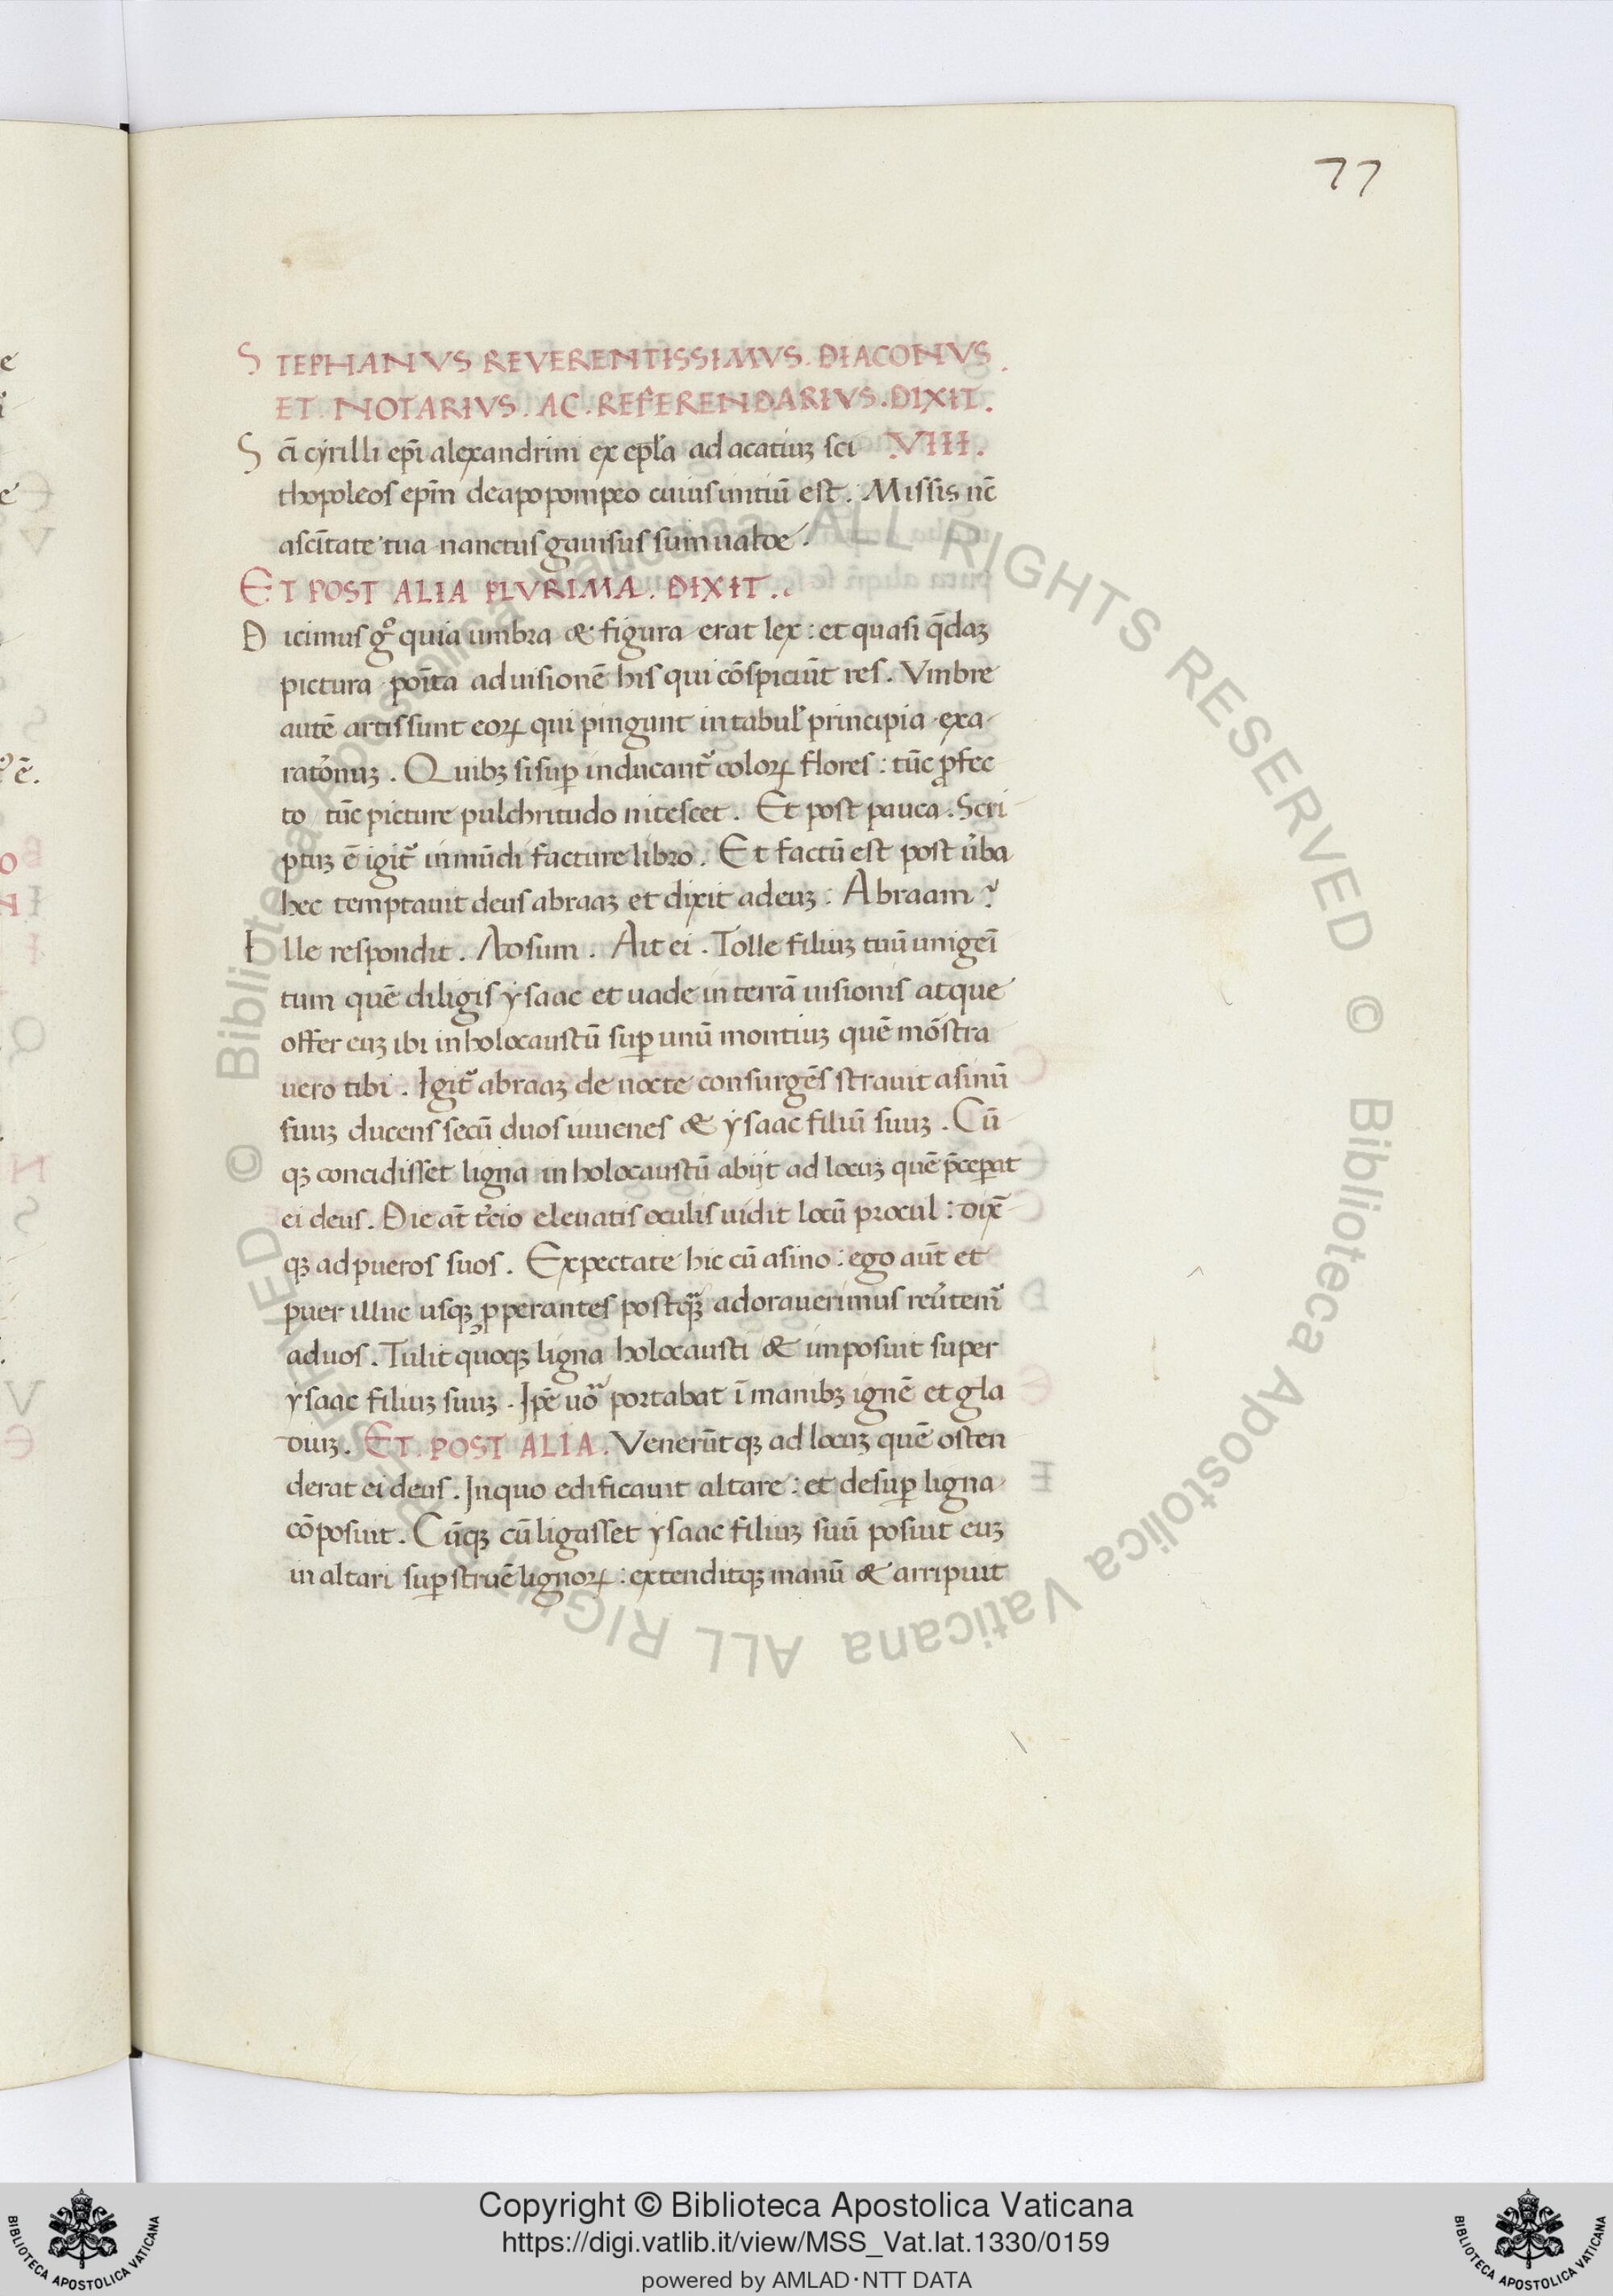 77
STEPHANVS REVERENTISSIMVS. DIACONVS.
ET. NOTARIVS. AC. REFERENDARIVS. DIXIT.
Scī cyrilli epī alexandrini ex epl'a ad acatiuꝫ sci .VIII.
thopoleos epīn de apopompeo cuius initiū est. Missis nc̄
a scītate tua nanctus gauisus sum ualde.
ET POST ALIA PLVRIMA. DIXIT.
Dicimus gͦ quia umbra & figura erat lex: et quasi q̄daꝫ
pictura poīta ad uisionē his qui cōspiciūt res. Vmbre
autē artis sunt eoꝝ qui pingunt in tabul' principia exa
ratōnuꝫ. Quibꝫ si suꝑ inducant᷑ coloꝝ flores: tūc ꝓfec
to tūc picture pulchritudo nitescet. Et post pauca. Scri
ptuꝫ ē igit᷑ in mūdi facture libro. Et factū est post u̓ba
hec temptauit deus abraaꝫ et dixit ad euꝫ: Abraam?
Ille respondit. Adsum. Ait ei. Tolle filiuꝫ tuū unigeī
tum quē diligis ysaac et uade in terrā uisionis atque
offer euꝫ ibi in holocaustū suꝑ unū montiuꝫ quē mōstra
uero tibi. Igit᷑ abraaꝫ de nocte consurgēs strauit asinū
suuꝫ ducens secū duos iuuenes & ysaac filiū suuꝫ. Cū
qꝫ concidisset ligna in holocaustū abijt ad locuꝫ quē p̄ceꝑat
ei deus. Die at̄ t̓cio eleuatis oculis uidit locū procul: dix̄
qꝫ ad pueros suos. Expectate hic cū asino: ego aūt et
puer illuc usqꝫ ꝓperantes postqᷓꝫ adorauerimus reu̓tem᷑
ad uos. Tulit quoqꝫ ligna holocausti & inposuit super
ysaac filiuꝫ suuꝫ. Ip̄e uō portabat ī manibꝫ ignē et gla
diuꝫ. ET. POST ALIA. Venerūtqꝫ ad locuꝫ quē osten
derat ei deus. In quo edificauit altare: et desuꝑ ligna
cōposuit. Cūqꝫ cū ligasset ysaac filiuꝫ suū posuit euꝫ
in altari suꝑ struē lignoꝝ: extenditqꝫ manū & arripuit
© Biblioteca Apostolica Vaticana ALL RIGHTS RESERVED © Biblioteca Apostolica Vaticana ALL RIGHTS RESERVED
Copyright © Biblioteca Apostolica Vaticana
https://digi.vatlib.it/view/MSS_Vat.lat.1330/0159
powered by AMLAD·NTT DATA
BIBLIOTECA APOSTOLICA VATICANA
BIBLIOTECA APOSTOLICA VATICANA